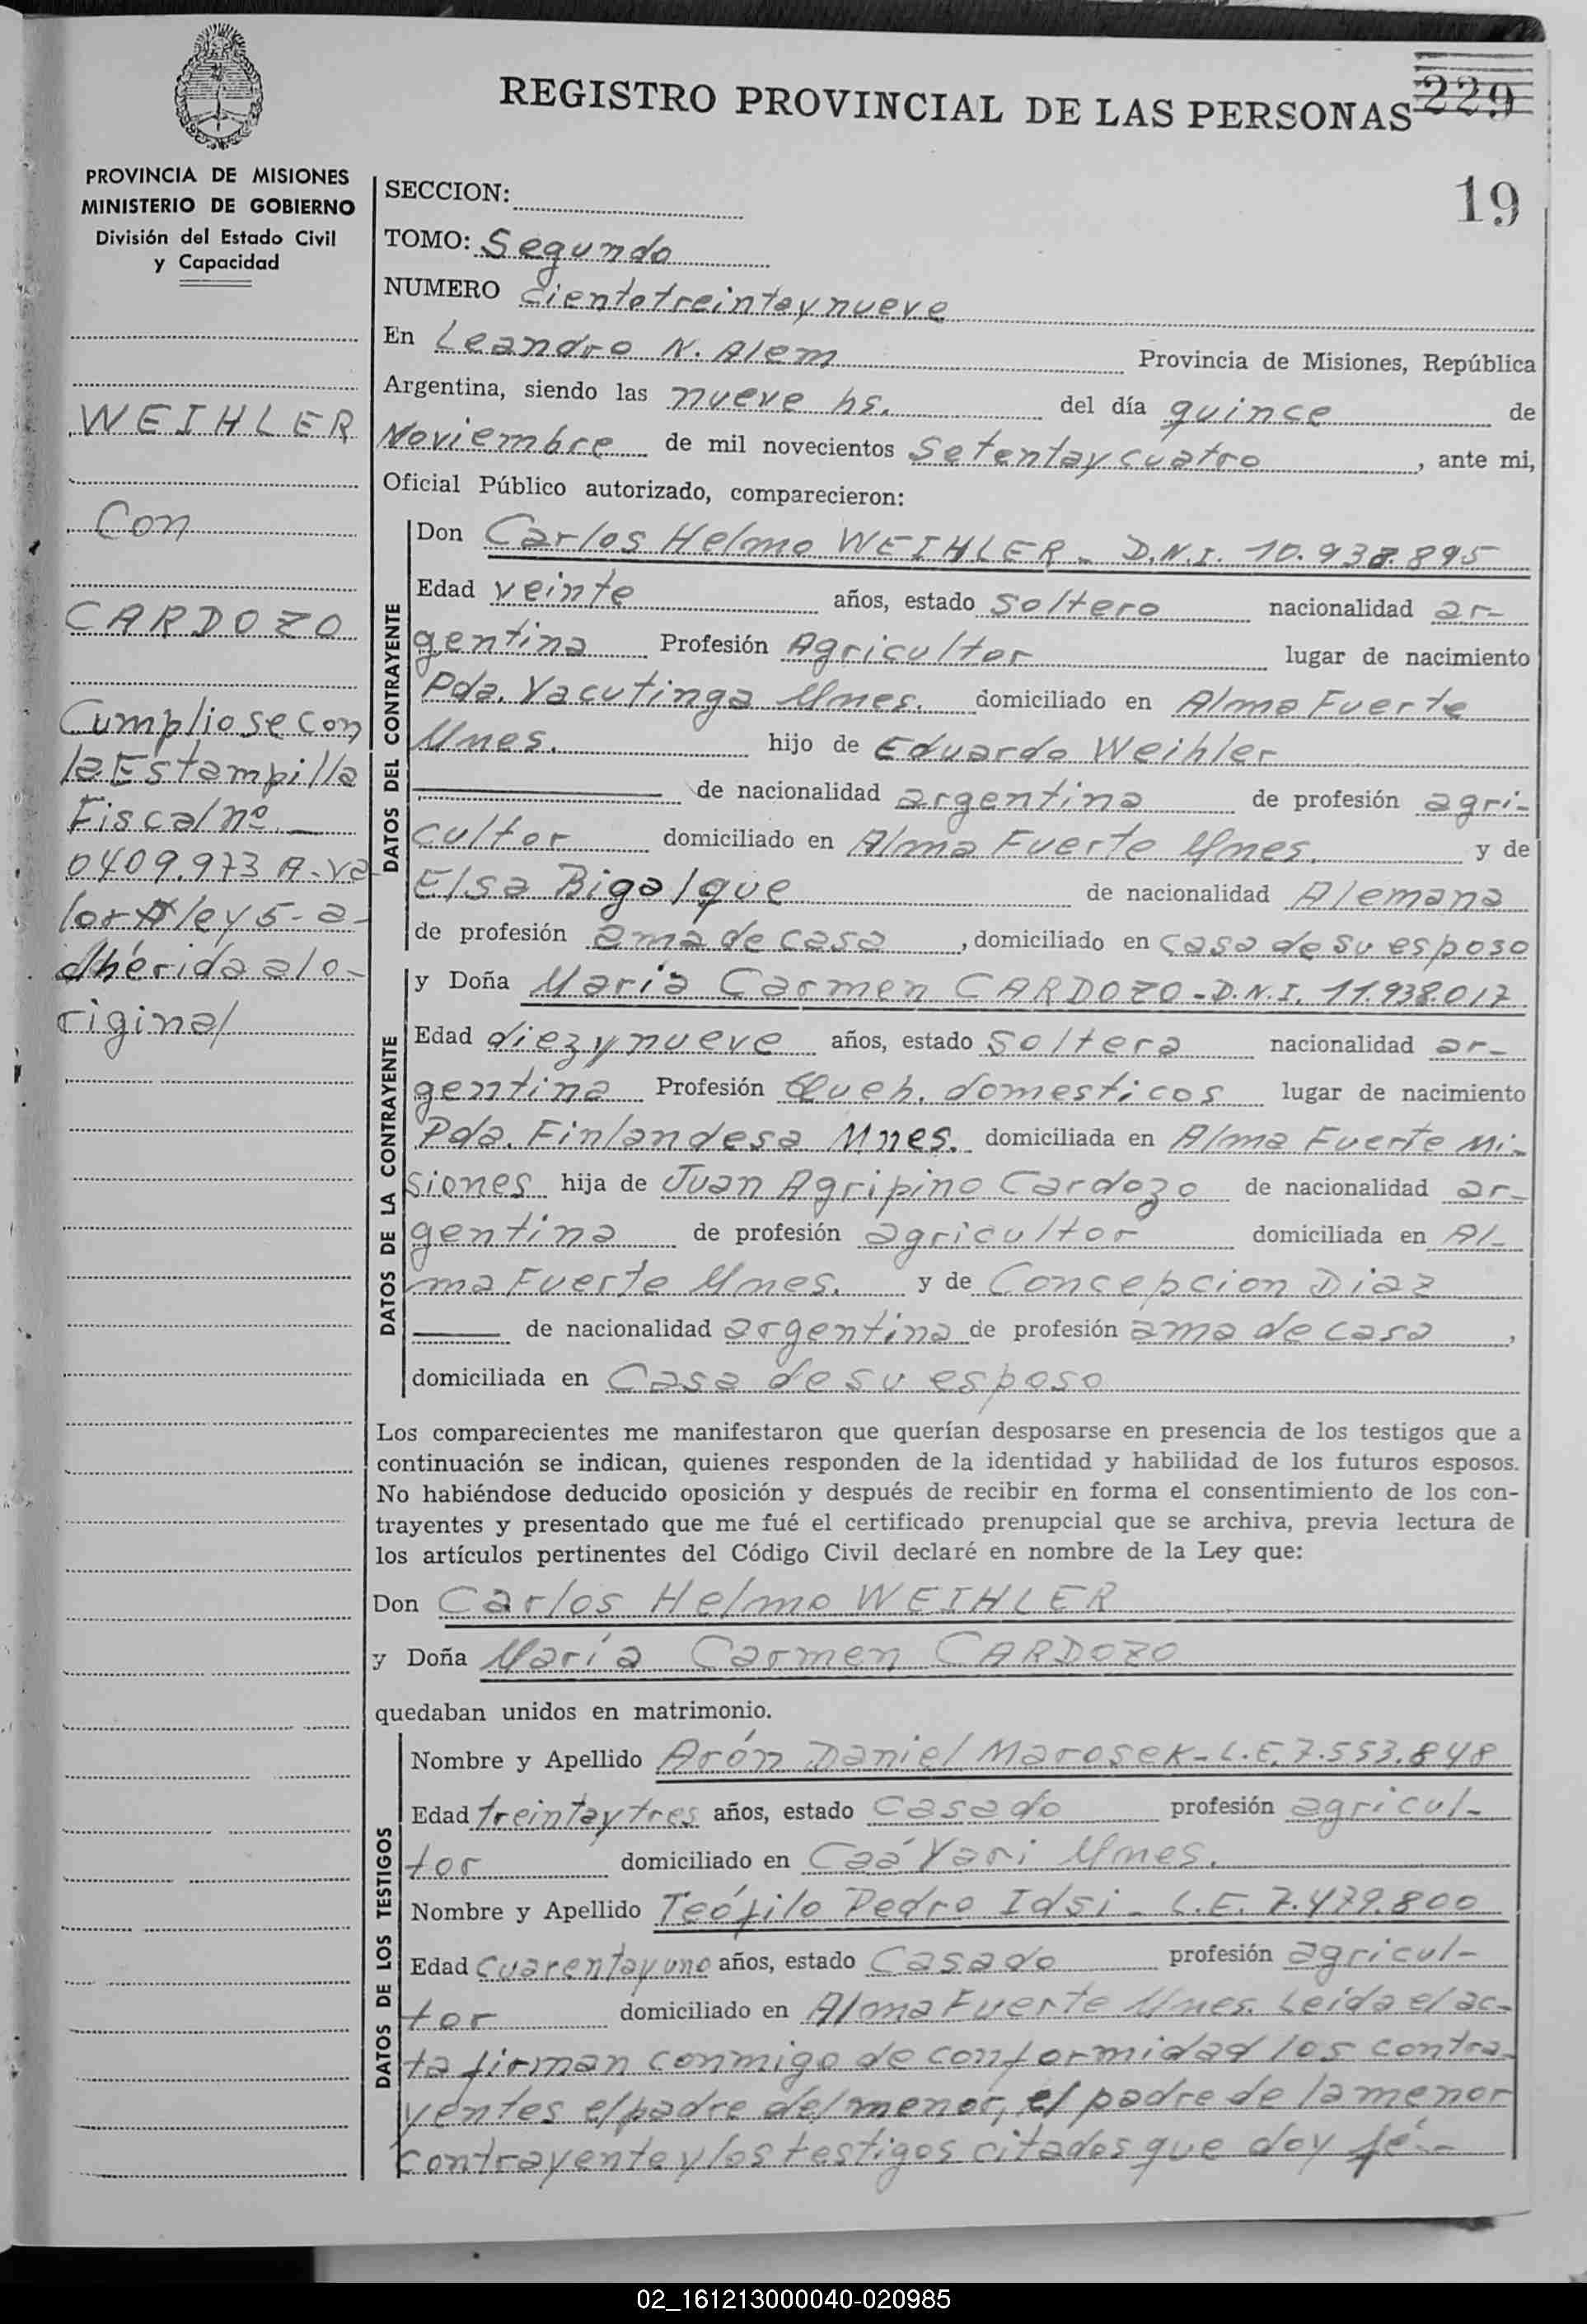 REGISTRO PROVINCIAL DE LAS PERSONAS 229
19
PROVINCIA DE MISIONES
MINISTERIO DE GOBIERNO
División del Estado Civil
y Capacidad
WEIHLER
Con
CARDOZO
Cumpliose con
la Estampilla
Fiscal nº _
0409.973 A-va
lor $ ley 5-a-
dherida al o-
riginal
SECCION:
TOMO: Segundo
NUMERO Cientotreintaynueve
En Leandro N. Alem Provincia de Misiones, República
Argentina, siendo las nueve hs. del día quince de
Noviembre de mil novecientos Setentaycuatro, ante mi,
Oficial Público autorizado, comparecieron:
DATOS DEL CONTRAYENTE
Don Carlos Helmo WEIHLER - D.N.I. 10.938.895
Edad veinte años, estado soltero nacionalidad ar-
gentina Profesión Agricultor lugar de nacimiento
Pda. Yacutinga Mnes. domiciliado en Alma Fuerte
Mnes. hijo de Eduardo Weihler
de nacionalidad argentina de profesión agri-
cultor domiciliado en Alma Fuerte Mnes. y de
Elsa Bigalque de nacionalidad Alemana
de profesión ama de casa, domiciliado en casa de su esposo
DATOS DE LA CONTRAYENTE
y Doña Maria Carmen CARDOZO - D.N.I. 11.938.017
Edad diezynueve años, estado soltera nacionalidad ar-
gentina Profesión Queh. domesticos lugar de nacimiento
Pda. Finlandesa Mnes. domiciliada en Alma Fuerte Mi-
siones hija de Juan Agripino Cardozo de nacionalidad ar-
gentina de profesión agricultor domiciliada en Al-
ma Fuerte Mnes. y de Concepcion Diaz
de nacionalidad argentina de profesión ama de casa,
domiciliada en Casa de su esposo
Los comparecientes me manifestaron que querían desposarse en presencia de los testigos que a
continuación se indican, quienes responden de la identidad y habilidad de los futuros esposos.
No habiéndose deducido oposición y después de recibir en forma el consentimiento de los con-
trayentes y presentado que me fué el certificado prenupcial que se archiva, previa lectura de
los artículos pertinentes del Código Civil declaré en nombre de la Ley que:
Don Carlos Helmo WEIHLER
y Doña María Carmen CARDOZO
quedaban unidos en matrimonio.
DATOS DE LOS TESTIGOS
Nombre y Apellido Arón Daniel Marosek - L.E. 7.553.848
Edad treintaytres años, estado casado profesión agricul-
tor domiciliado en Caá Yari Mnes.
Nombre y Apellido Teófilo Pedro Idsi - L.E. 7.479.800
Edad cuarentayuno años, estado Casado profesión agricul-
tor domiciliado en Alma Fuerte Mnes. Leída el ac-
ta firman conmigo de conformidad los contra-
yentes el padre del menor, el padre de la menor
contrayente y los testigos citados que doy fé -
02_161213000040-020985